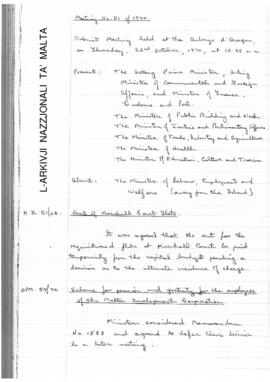 Meeting No. 81 of 1970
Cabinet Meeting held at the Auberge d'Aragon,
on Thursday, 22nd October, 1970, at 10.45 a.m.
Present: The Acting Prime Minister, Acting
Minister of Commonwealth and Foreign
Affairs, and Minister of Finance,
Customs and Port.
The Minister of Public Building and Works.
The Minister of Justice and Parliamentary Affairs.
The Minister of Trade, Industry and Agriculture
The Minister of Health.
The Minister of Education, Culture and Tourism
Absent: The Minister of Labour, Employment and
Welfare (away from the Island)
Rent of Marshall Court Flats.
It was agreed that the rent for the
requisitioned flats at Marshall Court be paid
temporarily from the capital budget pending a
decision as to the ultimate incidence of charge.
OPM. 59/70
Scheme for pension and gratuity for the employees
of the Malta Development Corporation
Ministers considered Memorandum
No. 1583 and agreed to defer their decision
to a later meeting.
L-ARKIVJI NAZZJONALI TA' MALTA